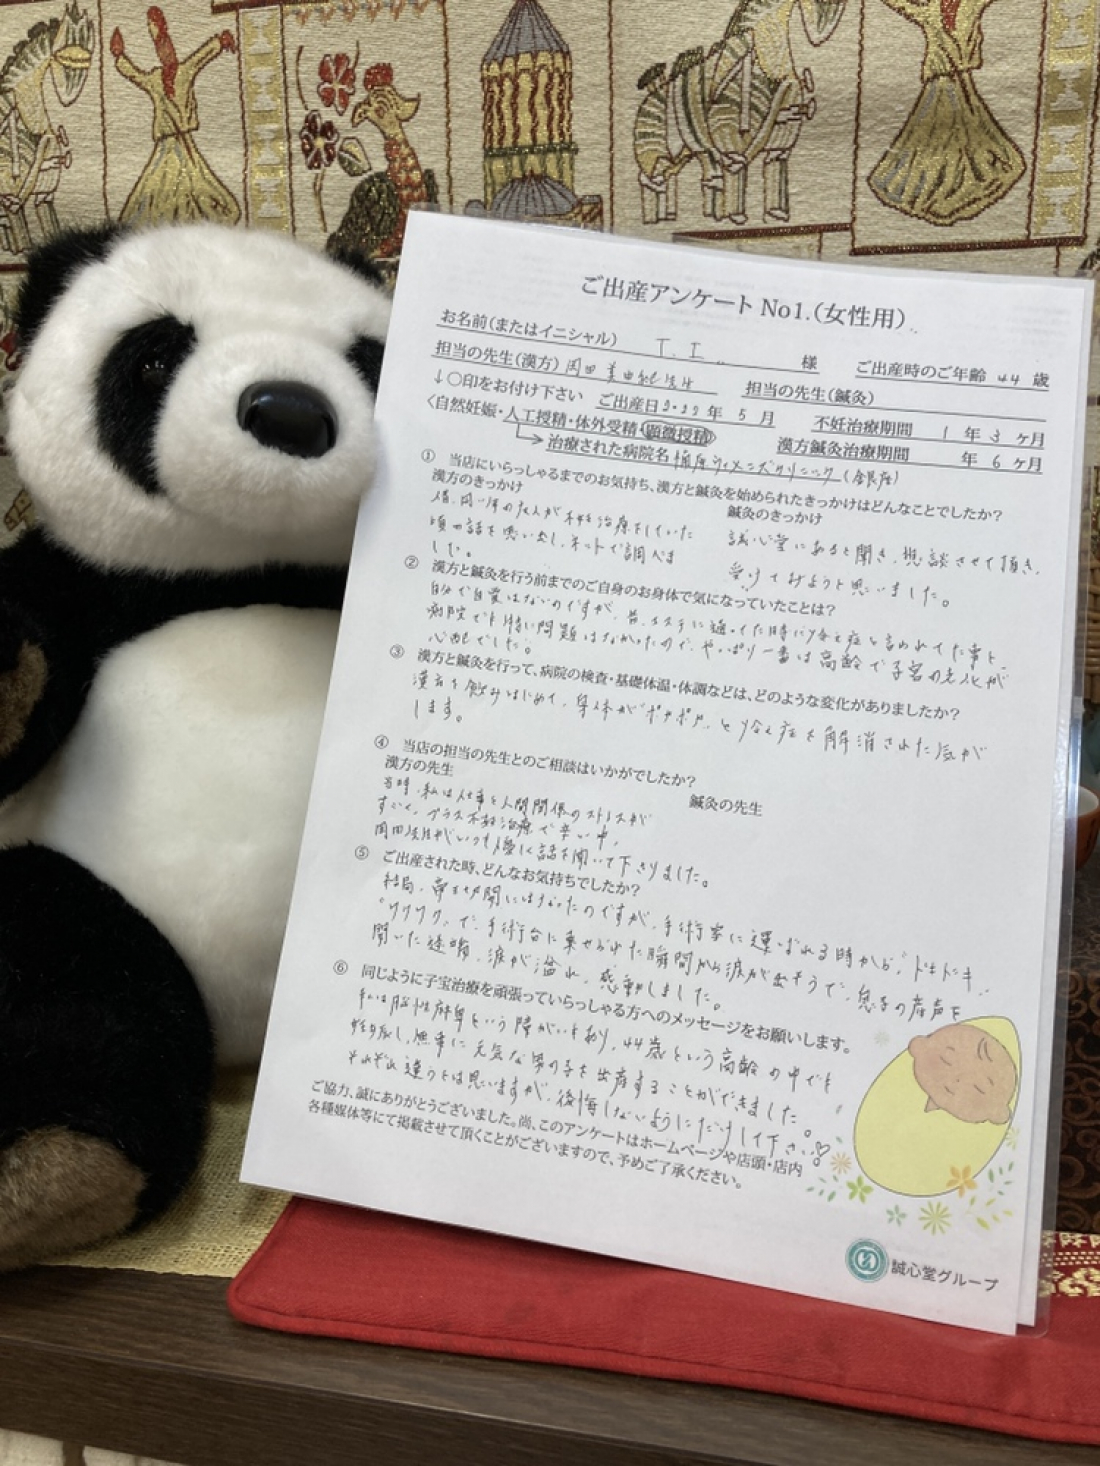 ご出産アンケート No1.(女性用)
お名前(またはイニシャル) T. I 様 ご出産時のご年齢 44 歳
担当の先生(漢方) 岡田 先生 担当の先生(鍼灸)
↓○印をお付け下さい ご出産日2022年 5 月 不妊治療期間 1 年 3 ヶ月
〈自然妊娠・人工授精・体外受精・顕微授精〉 漢方鍼灸治療期間 年 6 ヶ月
治療された病院名 ウィメンズクリニック(銀座)
① 当店にいらっしゃるまでのお気持ち、漢方と鍼灸を始められたきっかけはどんなことでしたか?
漢方のきっかけ 鍼灸のきっかけ
昔、同い年の友人が不妊治療をしていた
頃の話を思い出し、ネットで調べま
した。
誠心堂にあると聞き、相談させて頂き、
受けてみようと思いました。
② 漢方と鍼灸を行う前までのご自身のお身体で気になっていたことは?
自分で自覚はないのですが、昔、エステに通ってた時に冷え症と言われてた事と、
病院でも特に問題はなかったので、やっぱり一番は高齢で子宮の老化が
心配でした。
③ 漢方と鍼灸を行って、病院の検査・基礎体温・体調などは、どのような変化がありましたか?
漢方を飲みはじめて、身体が“ポカポカ”と冷え症も解消された気が
します。
④ 当店の担当の先生とのご相談はいかがでしたか?
漢方の先生 鍼灸の先生
当時、私は仕事と人間関係のストレスが
すごく、プラス不妊治療で辛い中、
岡田先生がいつも優しく話を聞いて下さりました。
⑤ ご出産された時、どんなお気持ちでしたか?
結局、帝王切開にはなったのですが、手術室に運ばれる時から“ドキドキ
ワクワク”で、手術台に乗せられた瞬間から涙が出そうで、息子の産声を
聞いた途端、涙が溢れ、感動しました。
⑥ 同じように子宝治療を頑張っていらっしゃる方へのメッセージをお願いします。
私は脳性麻卑という障がいもあり、44歳という高齢の中でも
妊娠し、無事に元気な男の子を出産することができました。
それぞれ違うとは思いますが、後悔しないようにだけして下さい♡
ご協力、誠にありがとうございました。尚、このアンケートはホームページや店頭・店内
各種媒体等にて掲載させて頂くことがございますので、予めご了承ください。
誠心堂グループ